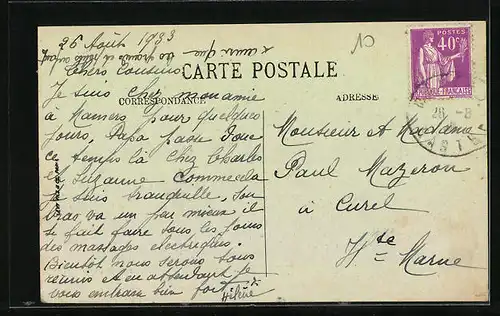 26 Août 1933
Chers Cousins
Je suis chez mon amie
à Mamers pour quelques
jours, Papa passe donc
ce temps là chez Charles
et Suzanne Comme cela
je suis tranquille, son
bras va un peu mieux il
se fait faire tous les jours
des massages electriques.
Bientôt nous serons tous
réunis et en attendant je
vous embrasse bien fort
Hélène
10
CARTE POSTALE
CORRESPONDANCE
ADRESSE
POSTES
40c
26 -8
Monsieur et Madame
Paul Mazeron
à Curel
Hte Marne